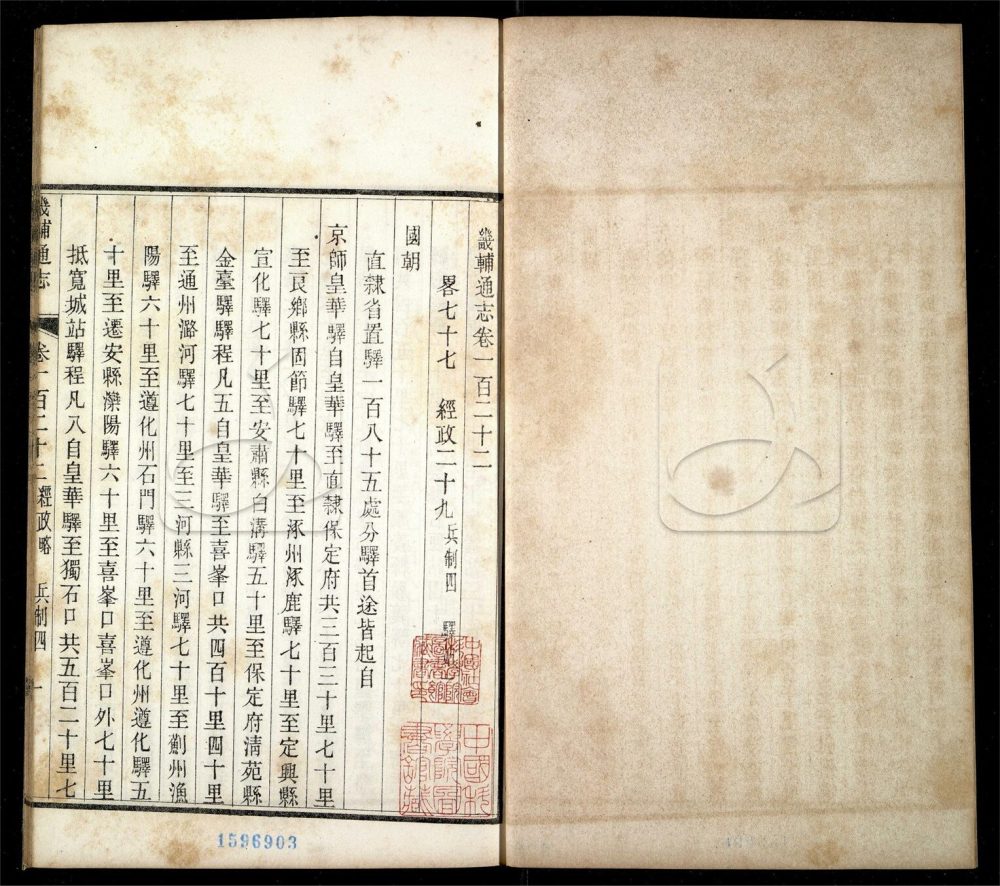 畿輔通志卷一百二十二
畧七十七　經政二十九　兵制四　驛站
國朝
直隸省置驛一百八十五處分驛首途皆起自
京師皇華驛自皇華驛至直隸保定府共三百三十里七十里
至良鄉縣固節驛七十里至涿州涿鹿驛七十里至定興縣
宣化驛七十里至安肅縣白溝驛五十里至保定府淸苑縣
金臺驛驛程凡五自皇華驛至喜峯口共四百十里四十里
至通州潞河驛七十里至三河縣三河驛七十里至薊州漁
陽驛六十里至遵化州石門驛六十里至遵化州遵化驛五
十里至遷安縣灤陽驛六十里至喜峯口喜峯口外七十里
抵寬城站驛程凡八自皇華驛至獨石口共五百二十里七
畿輔通志　卷一百二十二　經政略　兵制四　一
中國科學院圖書館藏
1596903